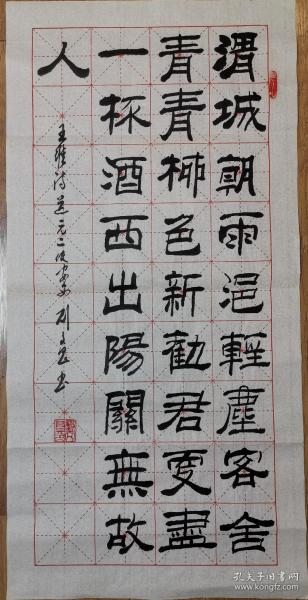 渭城朝雨浥輕塵客舍
青青柳色新勸君更盡
一杯酒西出陽關無故
人
王維诗送元二使安西 刘书
孔夫子旧书网